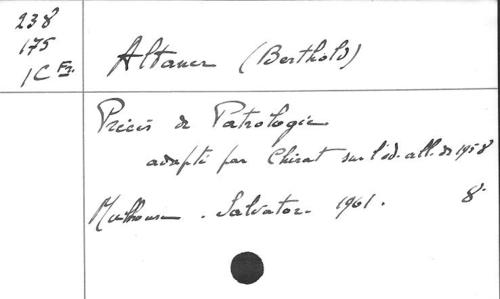 238
175
1C Fz.
Altaner (Berthold)
Précis de Patrologie
adapté par Chirat sur l'éd. all. de 1958
Mulhouse. Salvator. 1961. 8°